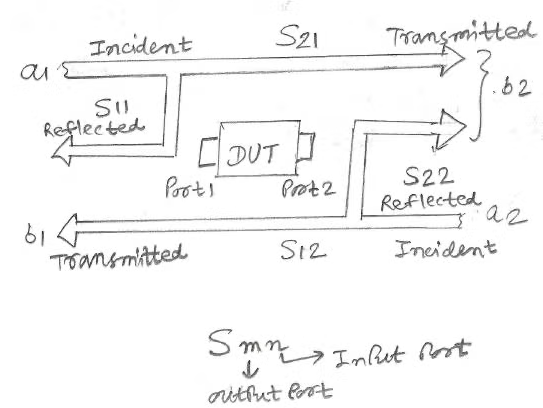 Incident S21 Transmitted
a1
b2
S11
Reflected
DUT
Port1 Port2
S22
Reflected
b1 a2
Transmitted S12 Incident
Smn → Input Port
↓
output Port